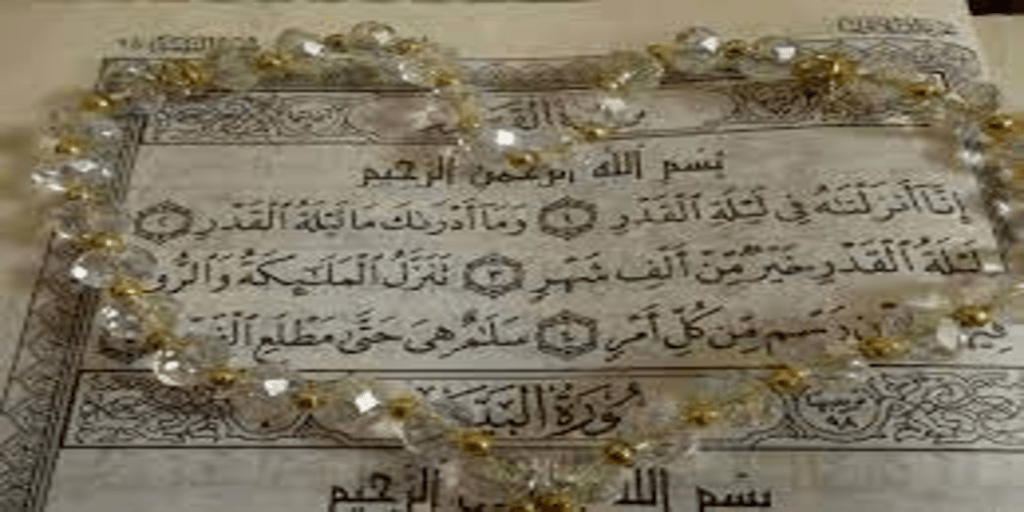 سورة القد
بسم الله الرحمن الرحيم
إِنَّا أَنزَلْنَٰهُ فِي لَيْلَةِ ٱلْقَدْرِ ١ وَمَا أَدْرَىٰكَ مَا لَيْلَةُ ٱلْقَدْرِ ٢
لَيْلَةُ ٱلْقَدْرِ خَيْرٌ مِّنْ أَلْفِ شَهْرٍ ٣ تَنَزَّلُ ٱلْمَلَٰٓئِكَةُ وَٱلرُّو
فِيهَا مِّن كُلِّ أَمْرٍ ٤ سَلَٰمٌ هِيَ حَتَّىٰ مَطْلَعِ
سُورَةُ ٱلْبَيِّ
٩٨
بسم الله الرحيم